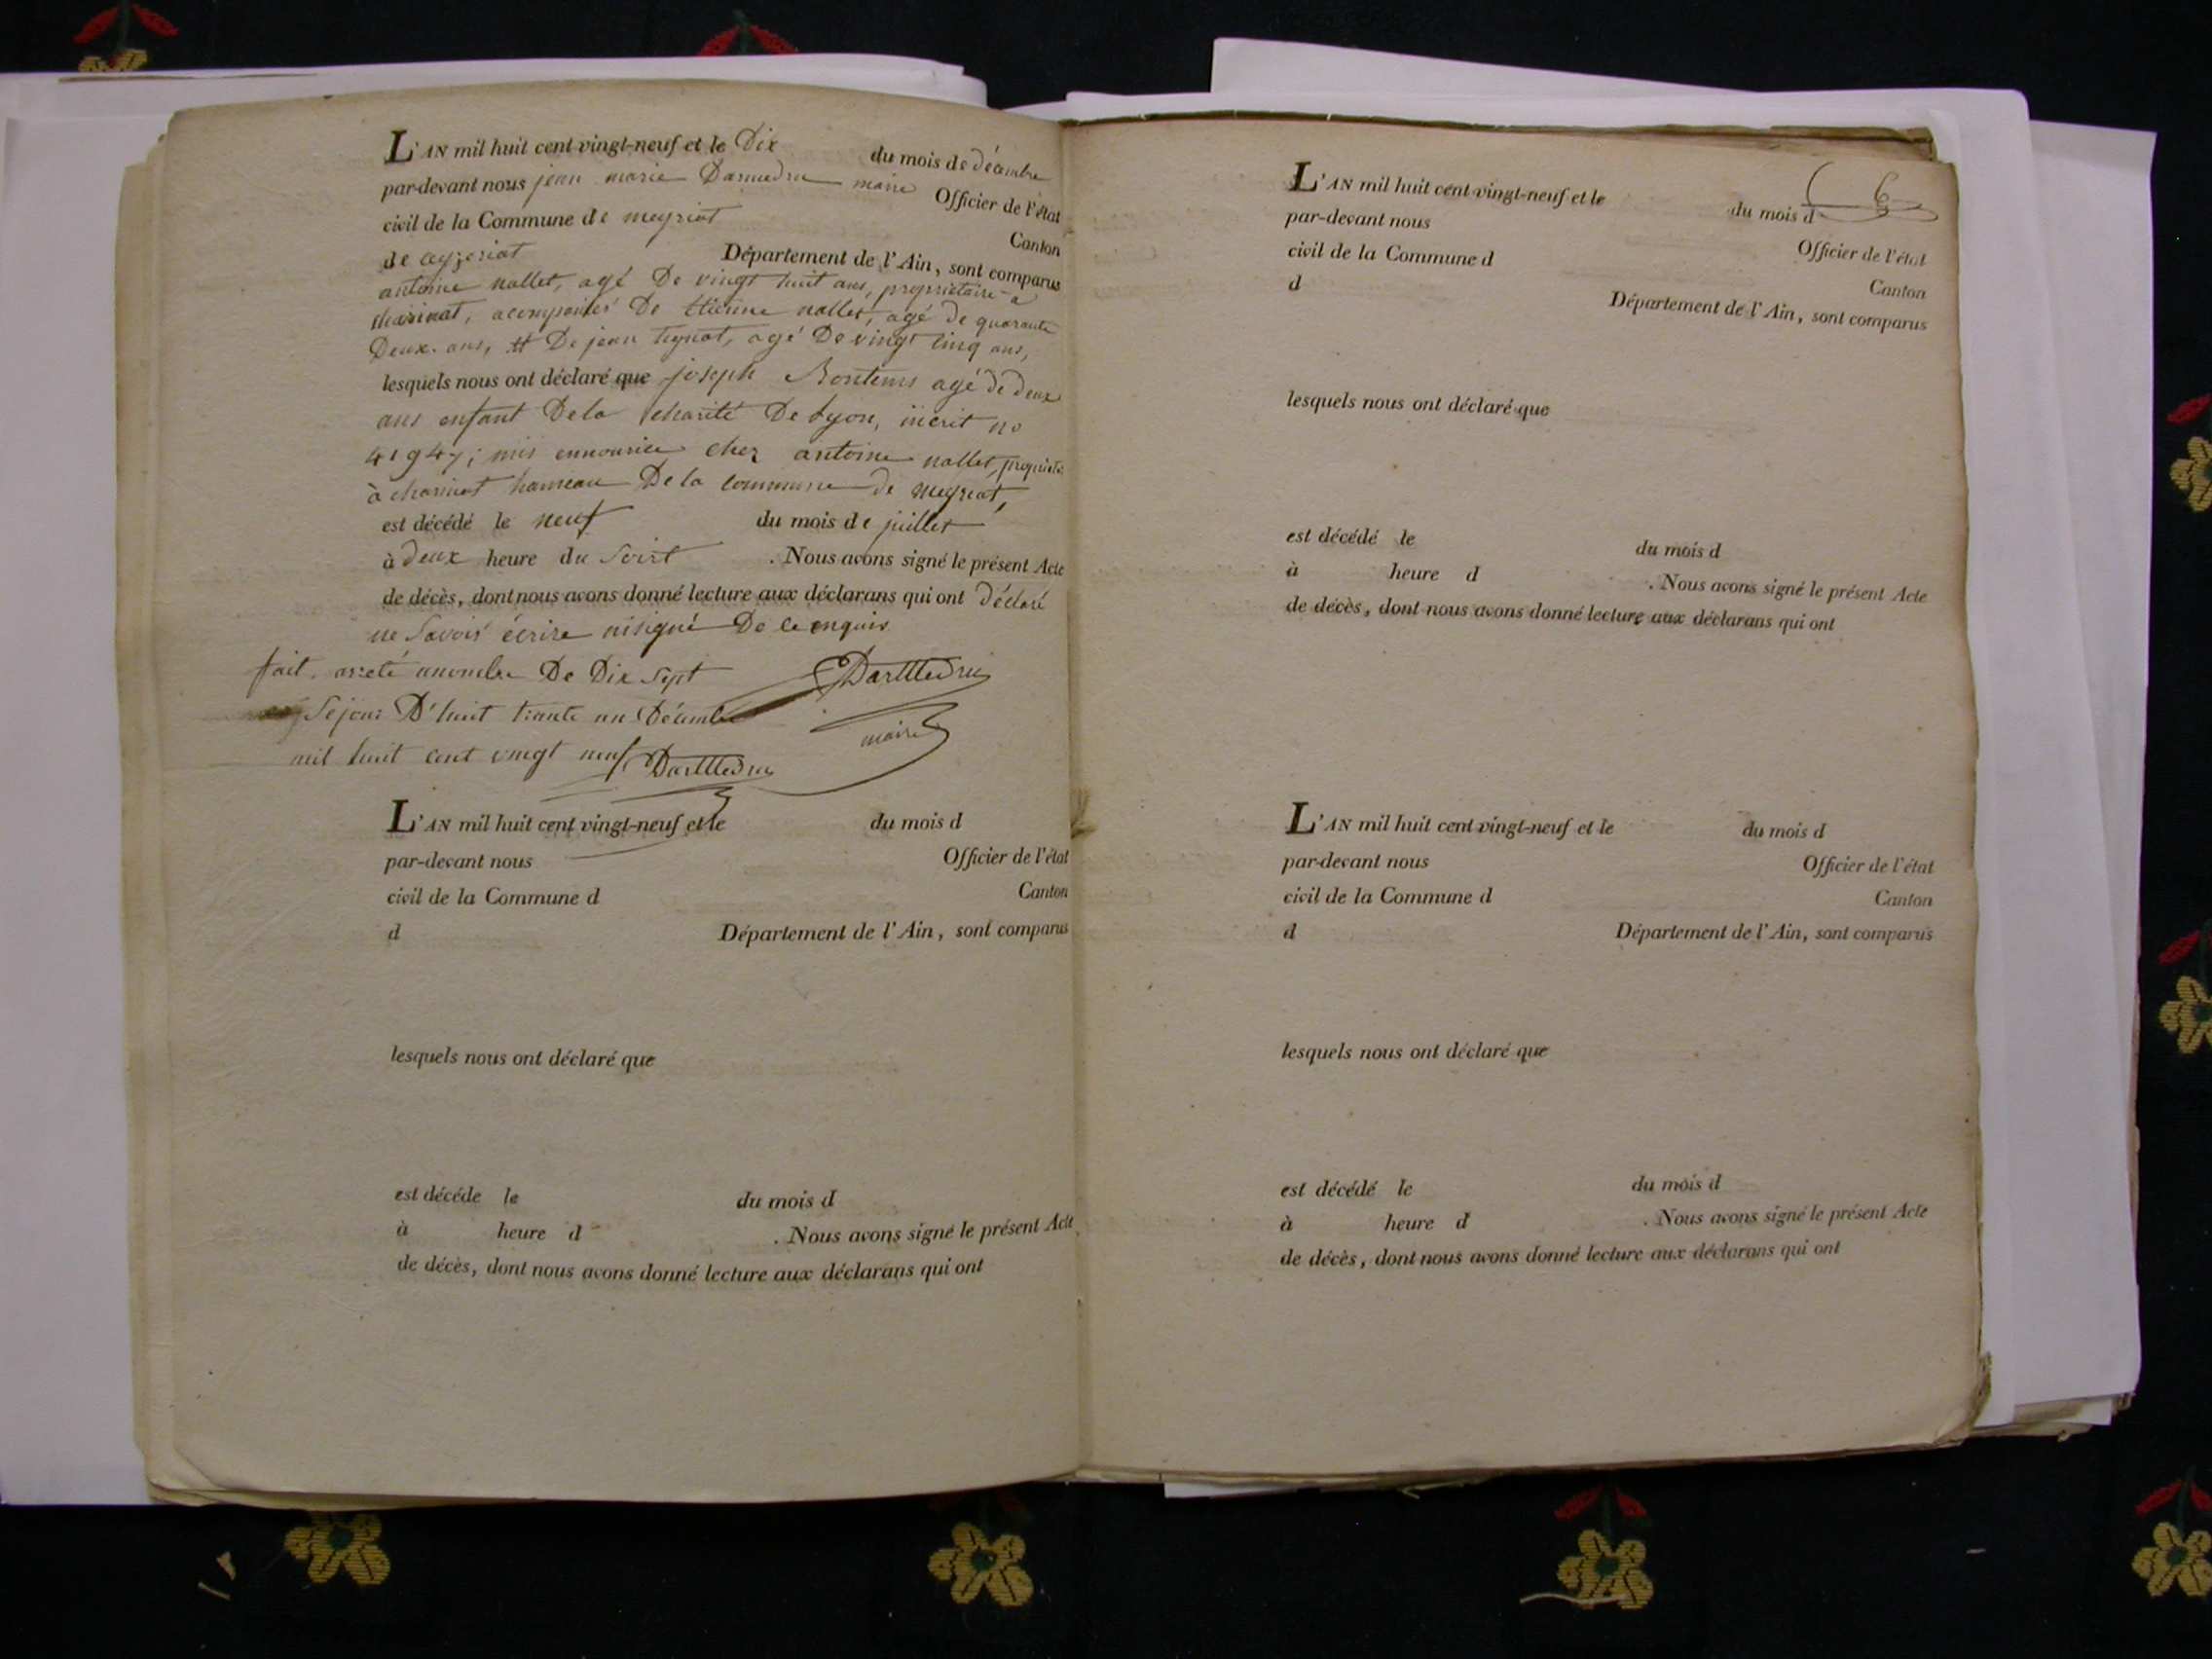 L'AN mil huit cent vingt-neuf et le Dix du mois de décembre
par-devant nous jean marie Darmedru maire Officier de l'état
civil de la Commune de meyriat Canton
de ceyzeriat Département de l'Ain, sont comparus
antoine nallet, agé De vingt huit ans, propriétaire a
charinat, De Etienne nallet, agé de quarante
Deux ans, et De jean tignat, agé De vingt cinq ans,
lesquels nous ont déclaré que joseph Bontems agé de deux
ans enfant De la charité De Lyon, no
41947; mis ennourice chez antoine nallet,
à charinat hameau De la commune de meyriat,
est décédé le neuf du mois de juillet
à deux heure du Soirt . Nous avons signé le présent Acte
de décès, dont nous avons donné lecture aux déclarans qui ont déclaré
ne Savoir écrire De ce enquis
fait, arreté De Dix Sept
trante un Décembre
mil huit cent vingt neuf
maire
L'AN mil huit cent vingt-neuf et le du mois d
par-devant nous Officier de l'état
civil de la Commune d Canton
d Département de l'Ain, sont comparus
lesquels nous ont déclaré que
est décéde le du mois d
à heure d . Nous avons signé le présent Acte
de décès, dont nous avons donné lecture aux déclarans qui ont
6
L'AN mil huit cent vingt-neuf et le du mois d
par-devant nous Officier de l'état
civil de la Commune d Canton
d Département de l'Ain, sont comparus
lesquels nous ont déclaré que
est décédé le du mois d
à heure d . Nous avons signé le présent Acte
de décès, dont nous avons donné lecture aux déclarans qui ont
L'AN mil huit cent vingt-neuf et le du mois d
par-devant nous Officier de l'état
civil de la Commune d Canton
d Département de l'Ain, sont comparus
lesquels nous ont déclaré que
est décédé le du mois d
à heure d . Nous avons signé le présent Acte
de décès, dont nous avons donné lecture aux déclarans qui ont